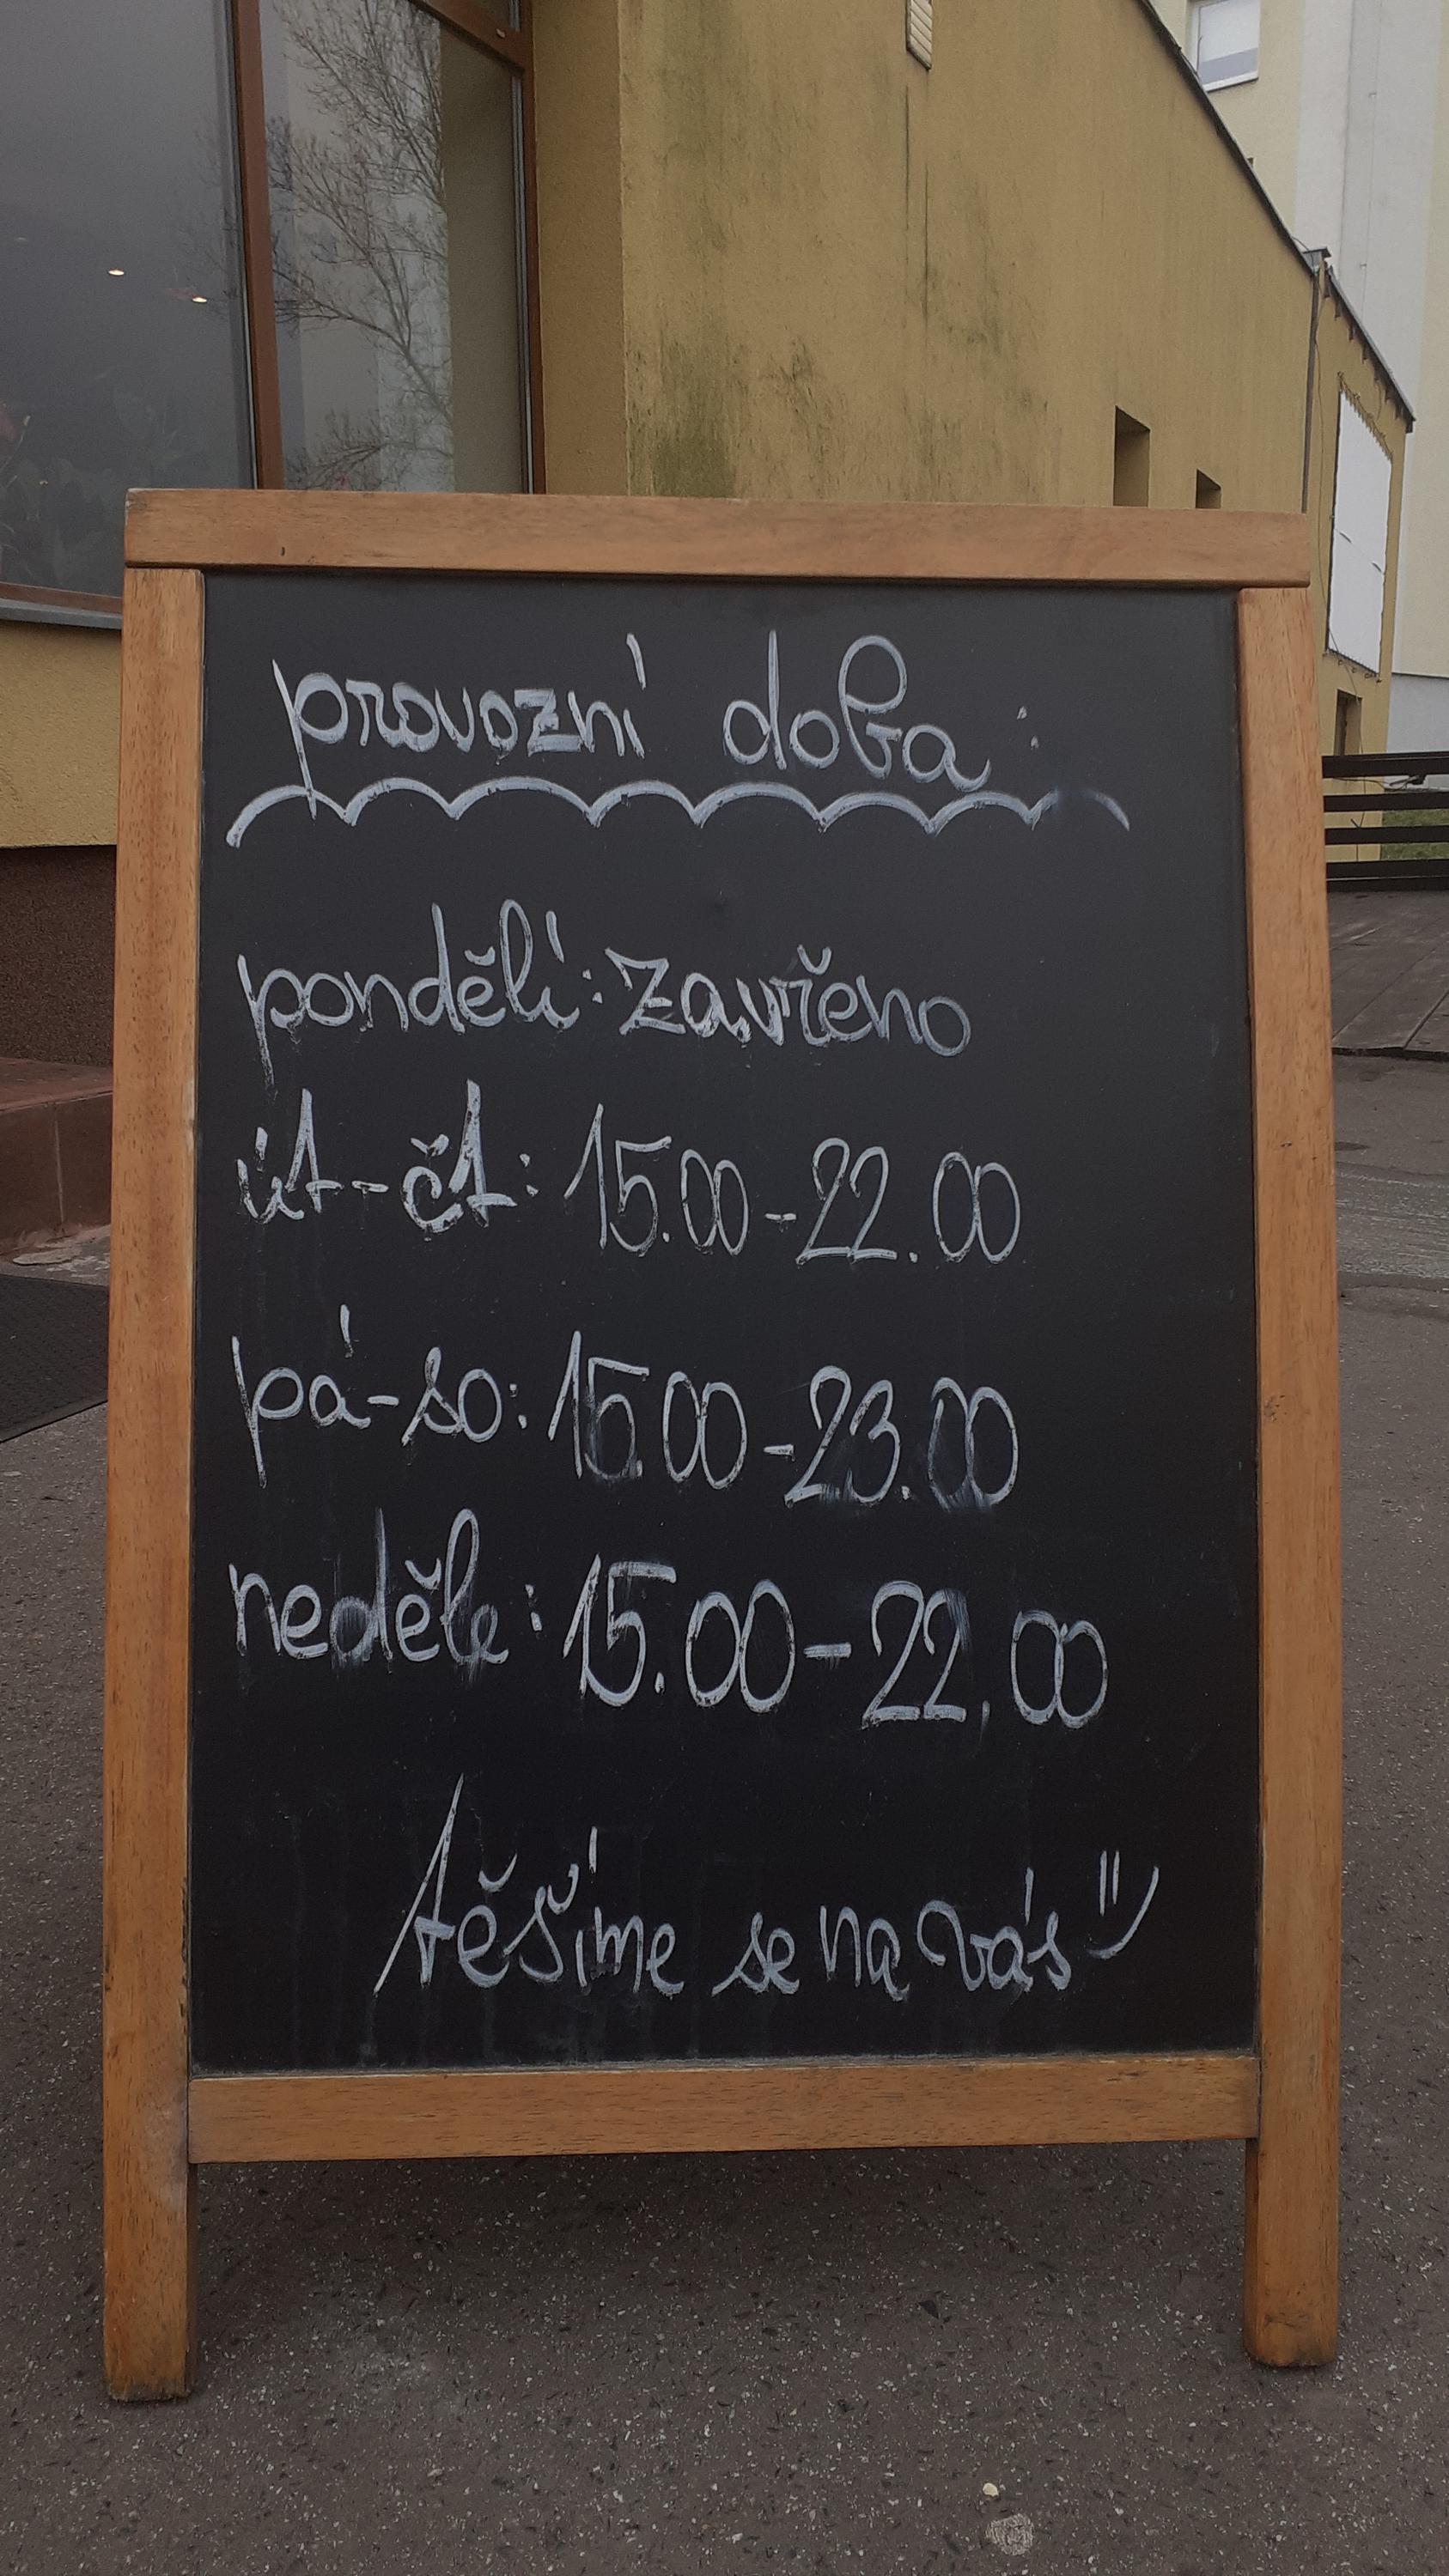 provozní doba:
pondělí: zavřeno
út-čt: 15.00-22.00
pá-so: 15.00-23.00
neděle: 15.00-22,00
těšíme se na vás ")